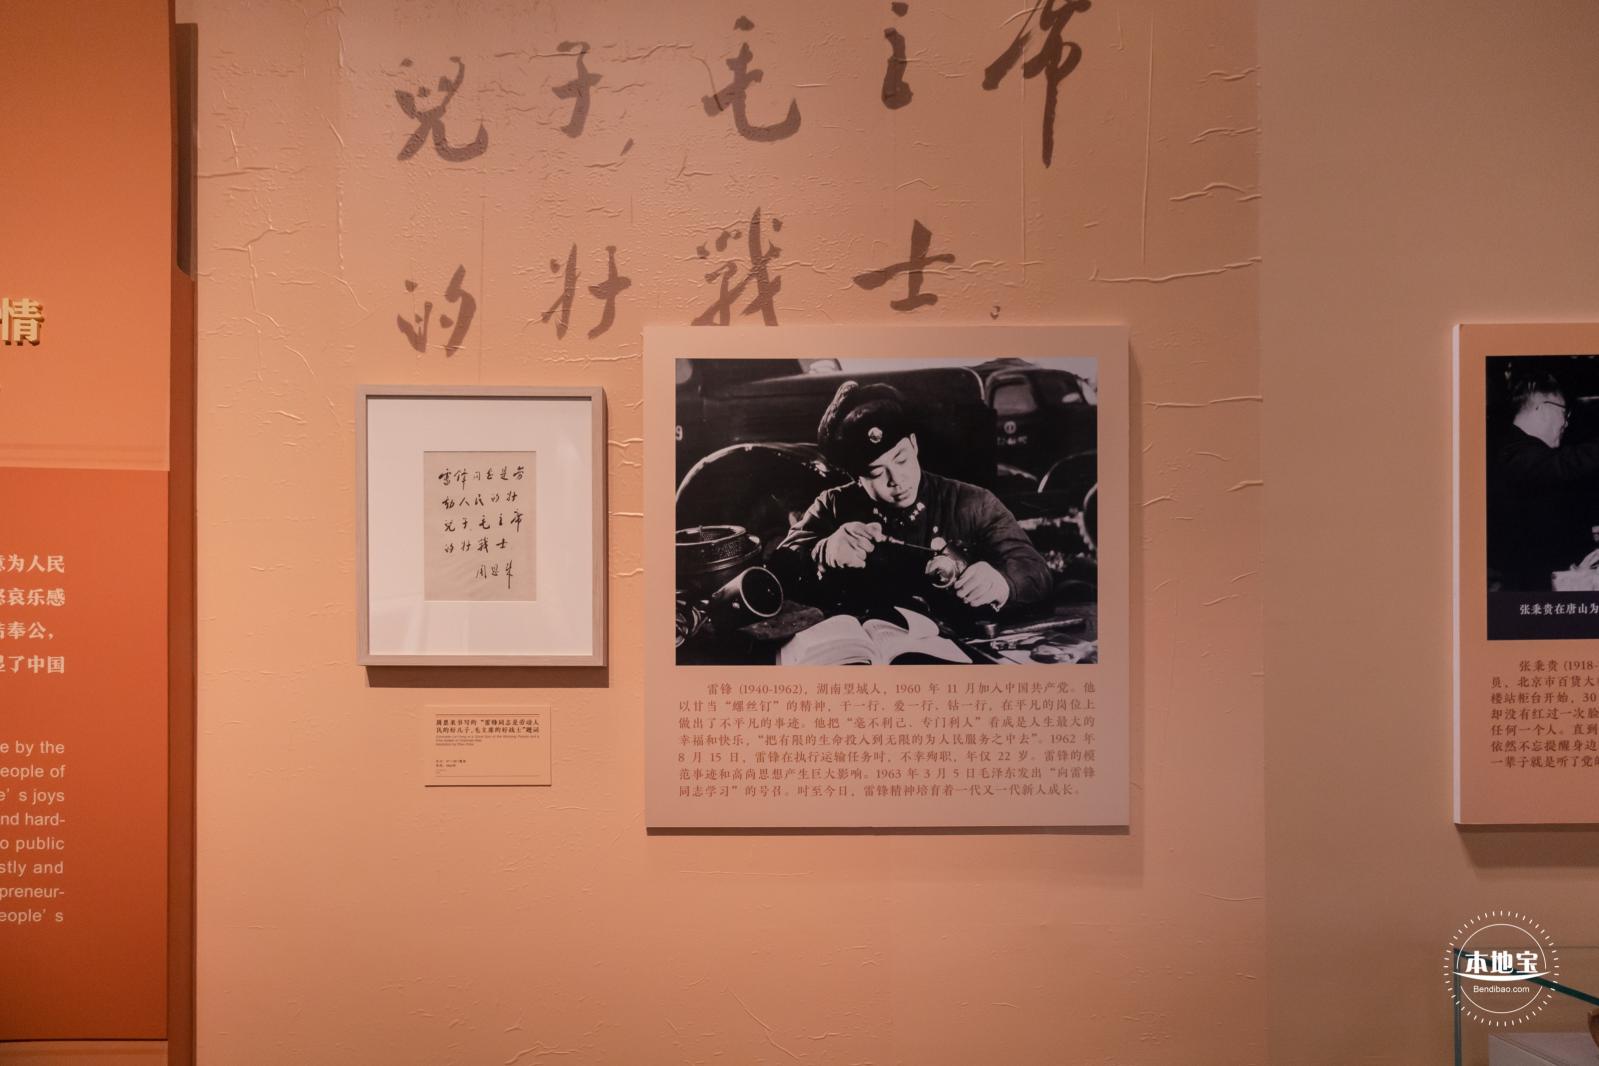 兒子,毛主席
的壮戰士。
情
为人民
哀乐感
奉公，
了中国
e by the
eople of
e's joys
nd hard-
o public
stly and
preneur-
eople's
雷锋同志是劳
动人民的壮
兒子,毛主席
的壮戰士
周恩来
周恩来书写的“雷锋同志是劳动人
民的好儿子，毛主席的好战士”题词
雷锋 (1940-1962)，湖南望城人，1960 年 11 月加入中国共产党。他
以甘当“螺丝钉”的精神，干一行、爱一行、钻一行，在平凡的岗位上
做出了不平凡的事迹。他把“毫不利己、专门利人”看成是人生最大的
幸福和快乐，“把有限的生命投入到无限的为人民服务之中去”。1962 年
8 月 15 日，雷锋在执行运输任务时，不幸殉职，年仅 22 岁。雷锋的模
范事迹和高尚思想产生巨大影响。1963 年 3 月 5 日毛泽东发出“向雷锋
同志学习”的号召。时至今日，雷锋精神培育着一代又一代新人成长。
张秉贵在唐山为
张秉贵 (1918-
员，北京市百货大
楼站柜台开始，30
却没有红过一次脸
任何一个人。直到
依然不忘提醒身边
一辈子就是听了党
本地宝
Bendibao.com